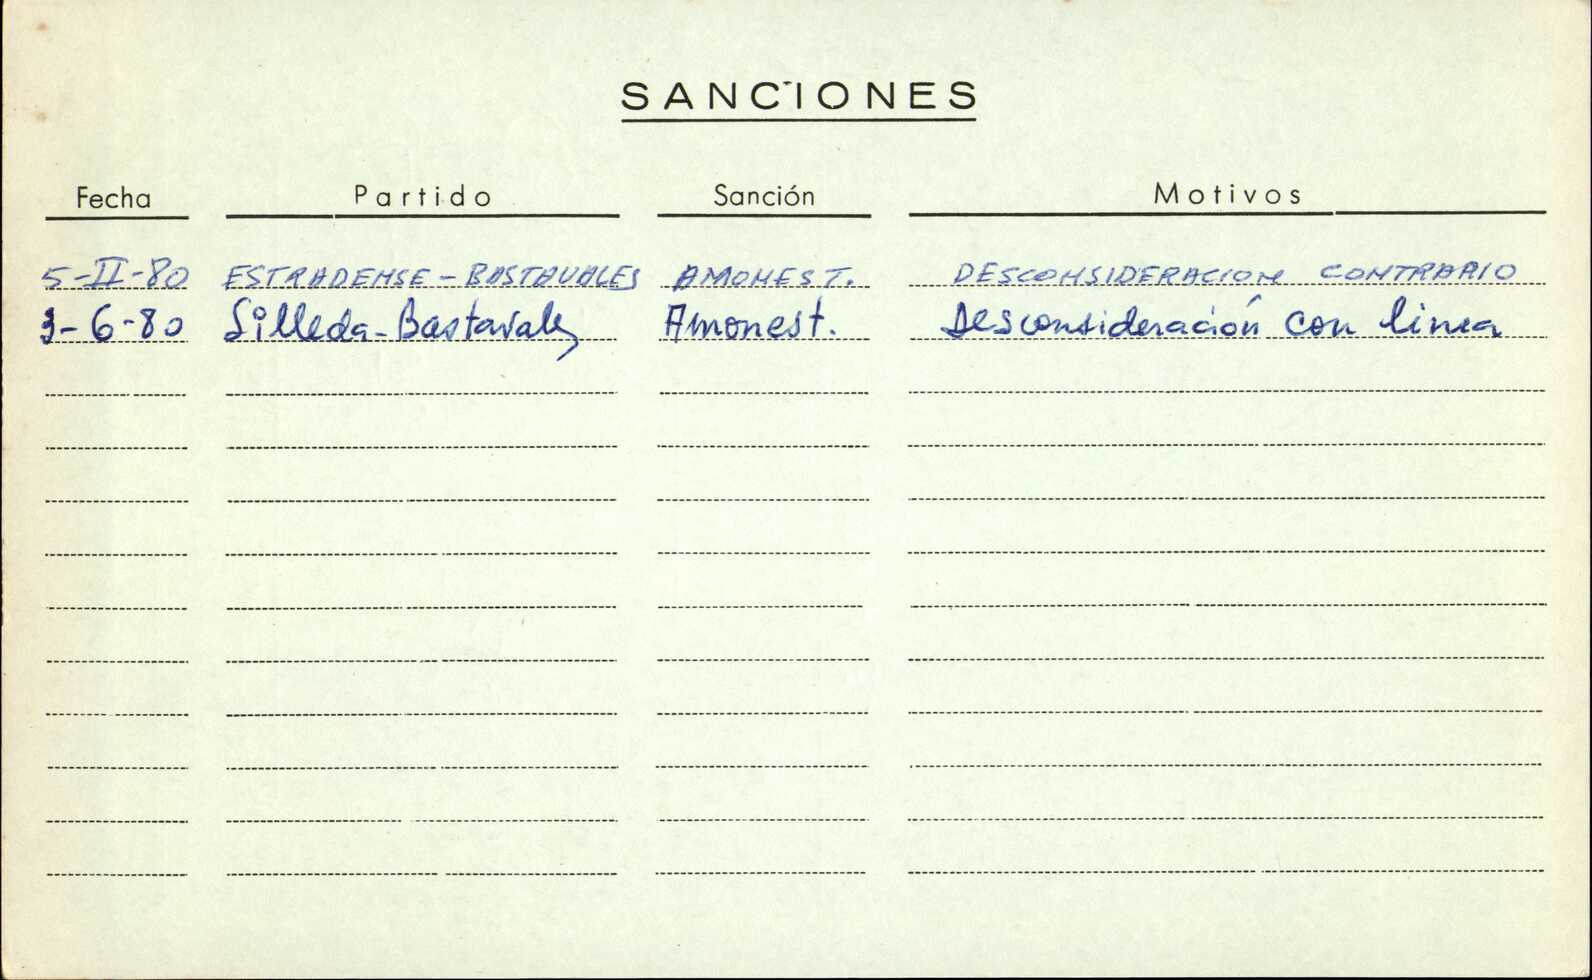 SANCIONES
Fecha Partido Sanción Motivos
5-II-80 ESTRADENSE - BASTAVALES AMONEST. DESCONSIDERACION CONTRARIO
3-6-80 Silleda-Bastavales Amonest. Desconsideración con linea